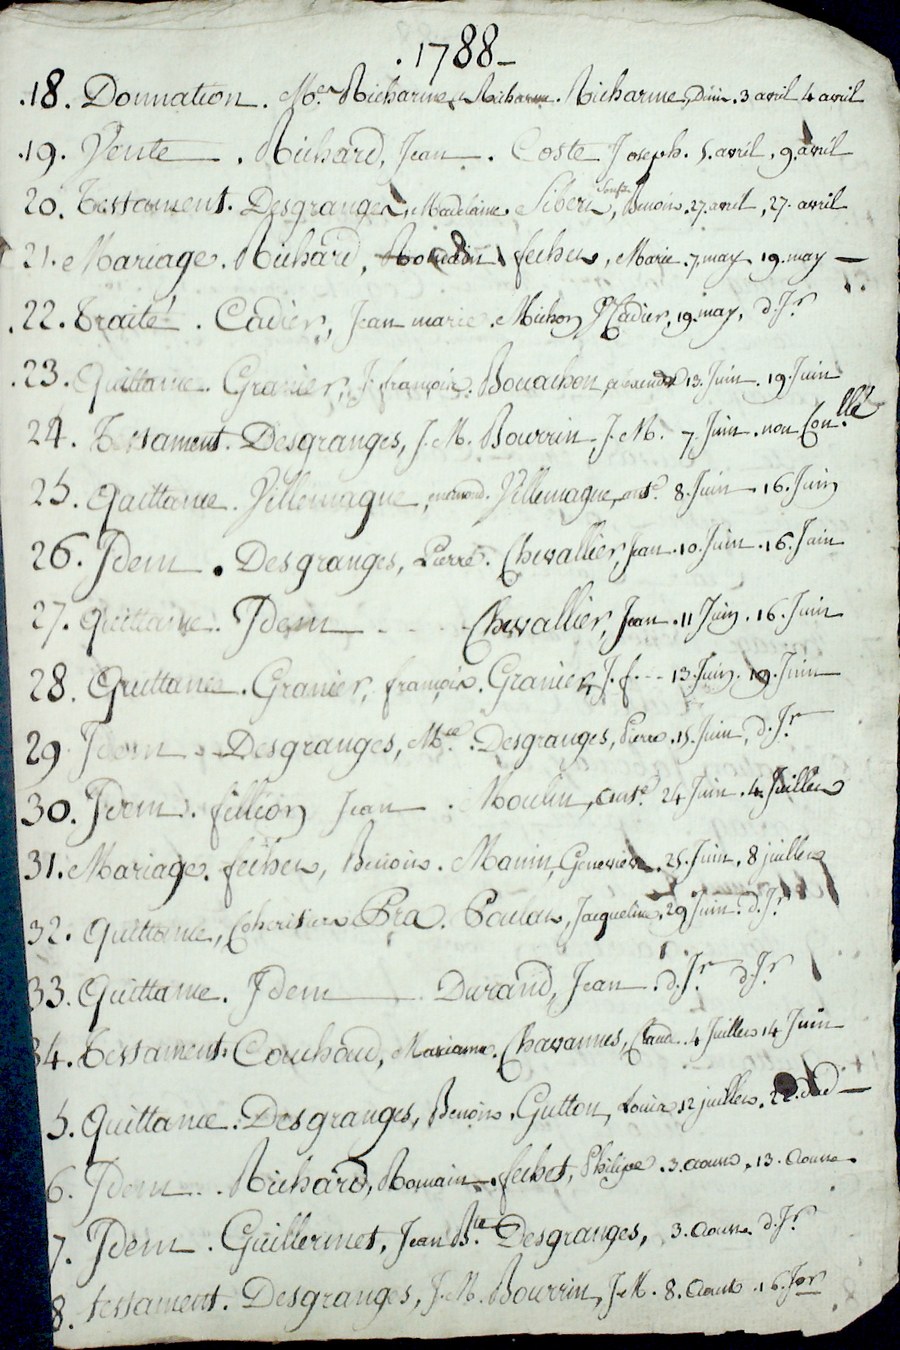 . 1788 -
.18. Donnation. Richarme, Richarme. Richarme, 3 avril 4 avril
.19. Vente. Richard, Jean. Coste Joseph. 5. avril. 9. avril
20. Testament. Desgranges, Madelaine Siberi, Benoit. 27. avril, 27. avril
21. Mariage. Richard, Romain. fechet, Marie. 7. may 19. may
.22. traité. Cadier, Jean marie. Michon Cadier, 19. may, d. Jr
.23. Quittance. Granier, J. françois. Bouachon 13. Juin. 19. Juin
24. Testament. Desgranges, J. M. Bourrin J. M. 7. Juin. non Con.llé
25. Quittance. Villemagne, Villemagne, ant.e 8. Juin. 16. Juin
26. Jdem. Desgranges, Pierre. Chevallier, Jean. 10. Juin. 16. Juin
27. Quittance. Jdem - - - Chevallier, Jean. 11 Juin. 16. Juin
28. Quittance. Granier, françois. Granier, J. f. - - 13. Juin. 19. Juin
29 Jdem Desgranges, Desgranges, Pierre. 15. Juin, d. Jr
30. Jdem. fillion Jean. Moulin, ant.e 24 Juin. 4. Juillet
31. Mariage. fechet, Benoit. Manin, Genevieve. 25. Juin, 8 juillet
32. Quittance, Coheritiers Pra. Poulat, Jacqueline, 29 Juin. d. Jr
33. Quittance. Jdem Durand, Jean. d. Jr d. Jr
34. testament. Couchaud, Marianne. Chavannes, Claude. 4 Juillet 14 Juin
5. Quittance. Desgranges, Benoit. Gutton, Louis 12 juillet. 22. dud
6. Jdem. Richard, Romain. fechet, Philipe. 3. aoust, 13. aoust
7. Jdem. Guillermet, Jean B.te Desgranges, 3. aoust. d. Jr
8. testament. Desgranges, J. M. Bourrin, J. M. 8. aoust. 16. Jor